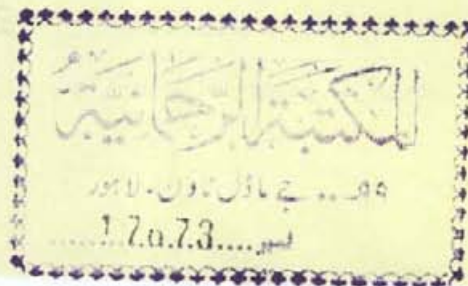 المكتبة الرحمانية
۹۹... جے ماڈل ٹاؤن - لاہور
نمبر....1.7.0.7.3.........